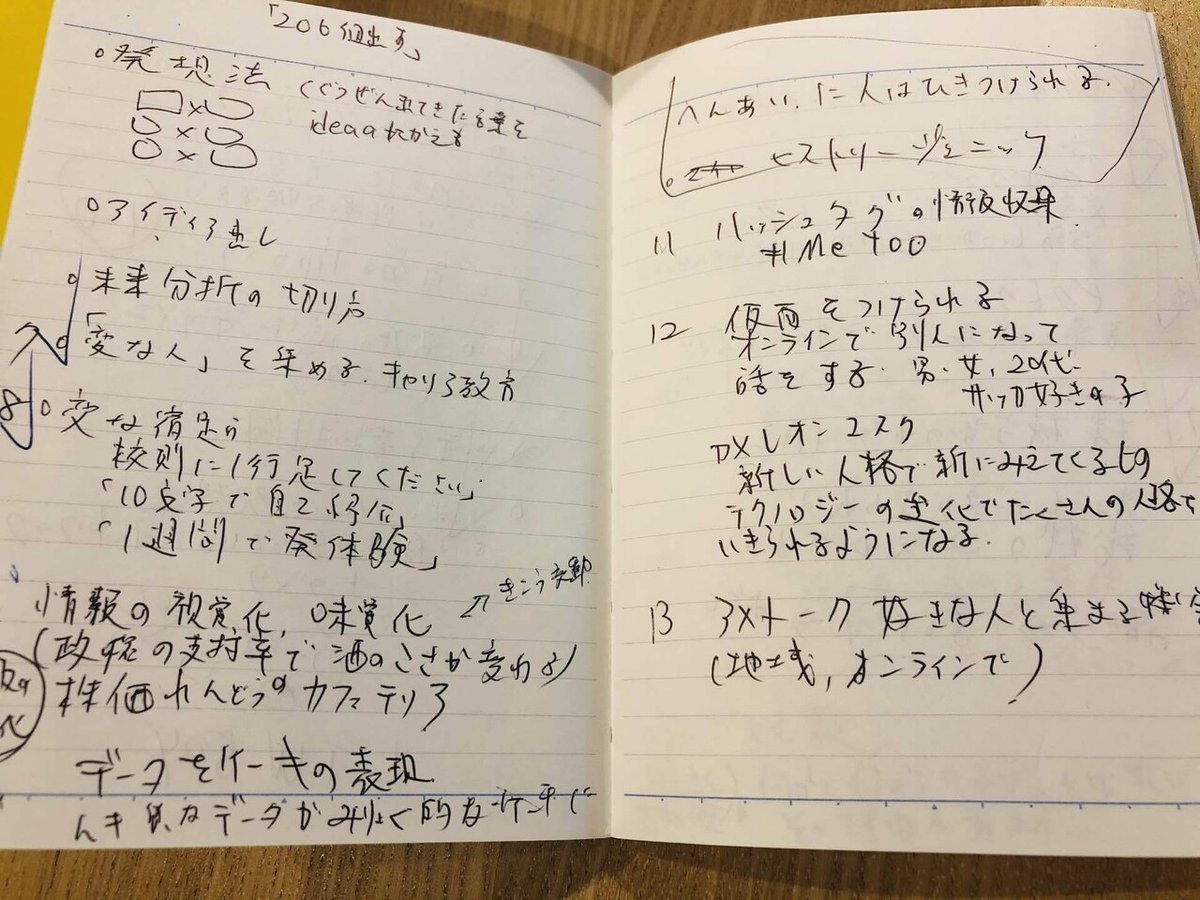 「206個出す」
○発想法 (ぐうぜん出てきた言葉を
ideaaかえる
□×○
○×○
○×○
○アイディア出し
○未来分析の切り方
○「変な人」を集める. キャリア教育
○変な宿題
校則に1行足してください」
「10点字で自己紹介」
「1週間で発体験」
↗きこう変動
情報の視覚化, 味覚化
(政権の支持率で酒のこさが変わる)
株価れんどうのカフェテリア
データをケーキの表現
データがみりょく的な
へんあい. に人はひきつけられる.
○ ヒストリージェニック
11 ハッシュタグの情報収集
#Me too
12 仮面をつけられる
オンラインで別人になって
話をする. 男, 女, 20代
サッカー好きの子
新しい人格で新にみえてくるもの
テクノロジーの進化でたくさんの人格を
いきられるようになる.
13 好きな人と集まる
(地域, オンラインで)